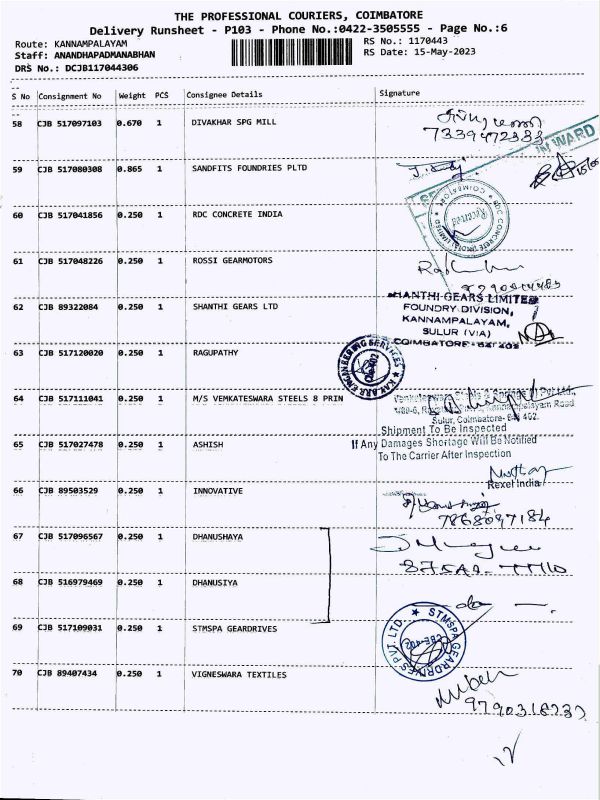 THE PROFESSIONAL COURIERS, COIMBATORE
Delivery Runsheet - P103 - Phone No.:0422-3505555 - Page No.:6
Route: KANNAMPALAYAM
RS No.: 1170443
Staff: ANANDHAPADMANABHAN
RS Date: 15-May-2023
DRS No.: DCJB117044306
S No Consignment No Weight PCS Consignee Details Signature
58 CJB 517097103 0.670 1 DIVAKHAR SPG MILL
7339472333
IN WARD
59 CJB 517080308 0.865 1 SANDFITS FOUNDRIES PLTD
60 CJB 517041856 0.250 1 RDC CONCRETE INDIA
RDC CONCRETE (INDIA) LIMITED
COIMBATORE
Received
61 CJB 517048226 0.250 1 ROSSI GEARMOTORS
62 CJB 89322084 0.250 1 SHANTHI GEARS LTD
SHANTHI GEARS LIMITED
FOUNDRY DIVISION,
KANNAMPALAYAM,
SULUR (VIA)
COIMBATORE - 641 402
63 CJB 517120020 0.250 1 RAGUPATHY
ENGINEERING SERVICES
64 CJB 517111041 0.250 1 M/S VEMKATESWARA STEELS 8 PRIN
Venkateswara Steels & Springs (I) Pvt Ltd.,
Kannampalayam Road
Sulur, Coimbatore- 641 402.
Shipment To Be Inspected
65 CJB 517027478 0.250 1 ASHISH
If Any Damages Shortage Will Be Notified
To The Carrier After Inspection
Rexel India
66 CJB 89503529 0.250 1 INNOVATIVE
7868097184
67 CJB 517096567 0.250 1 DHANUSHAYA
68 CJB 516979469 0.250 1 DHANUSIYA
69 CJB 517109031 0.250 1 STMSPA GEARDRIVES
STMSPA GEARDRIVES PVT. LTD.
CBE-402
70 CJB 89407434 0.250 1 VIGNESWARA TEXTILES